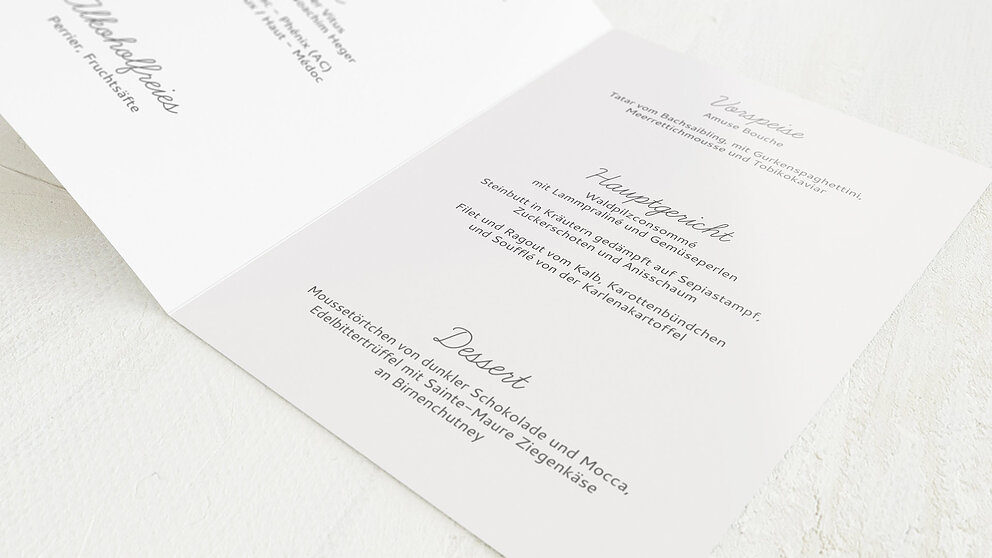 Vitus
Joachim Heger
– Phénix (AC)
/ Haut – Médoc
Alkoholfreies
Perrier, Fruchtsäfte
Vorspeise
Amuse Bouche
Tatar vom Bachsaibling, mit Gurkenspaghettini,
Meerrettichmousse und Tobikokaviar
Hauptgericht
Waldpilzconsommé
mit Lammpraliné und Gemüseperlen
Steinbutt in Kräutern gedämpft auf Sepiastampf,
Zuckerschoten und Anisschaum
Filet und Ragout vom Kalb, Karottenbündchen
und Soufflé von der Karlenakartoffel
Dessert
Moussetörtchen von dunkler Schokolade und Mocca,
Edelbittertrüffel mit Sainte-Maure Ziegenkäse
an Birnenchutney